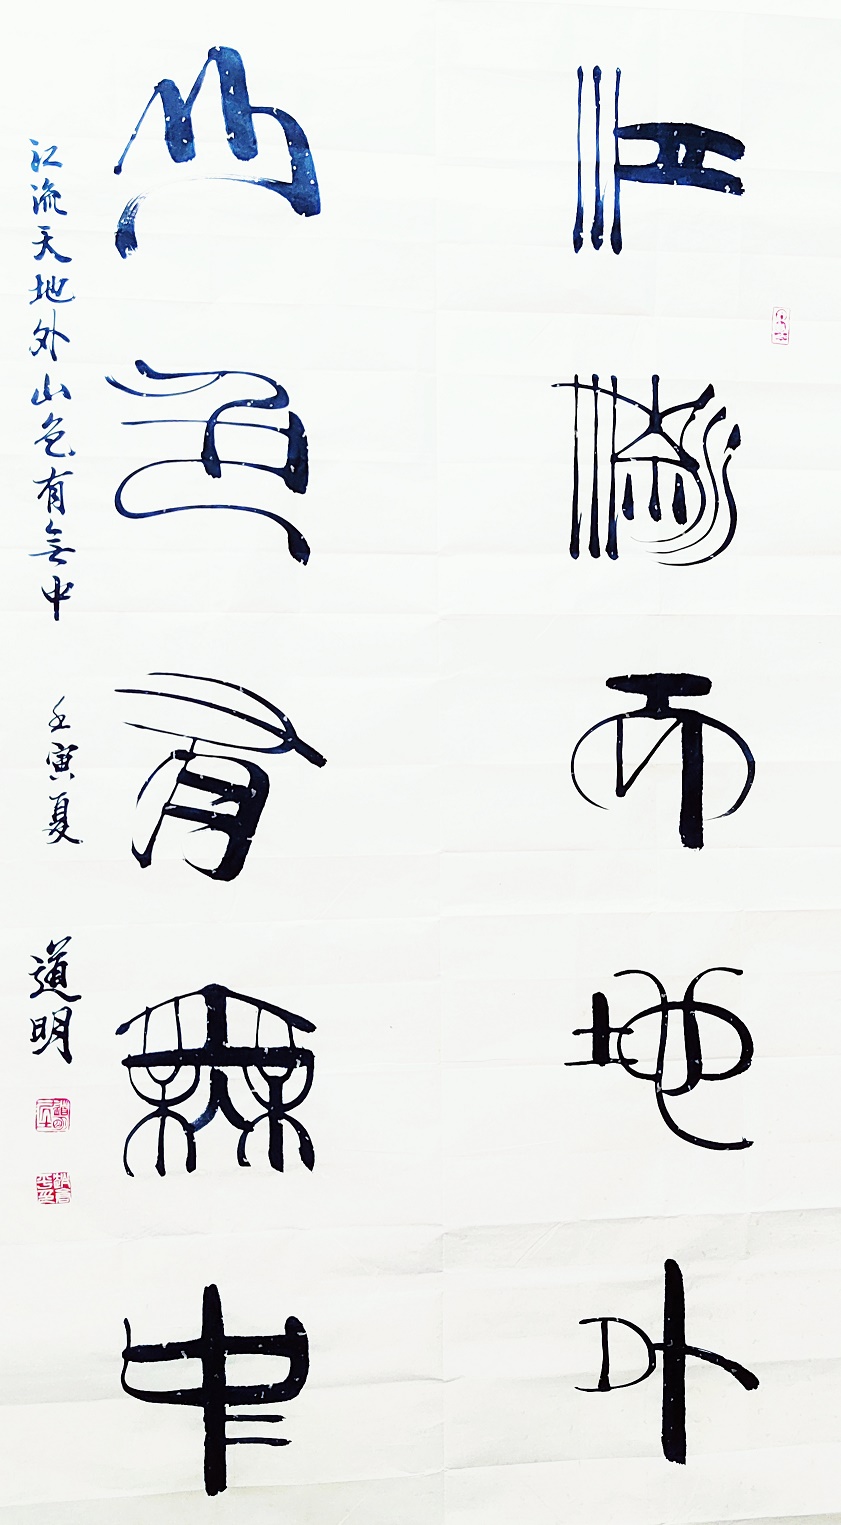 江流天地外
山色有無中
江流天地外山色有無中
壬寅夏
道明